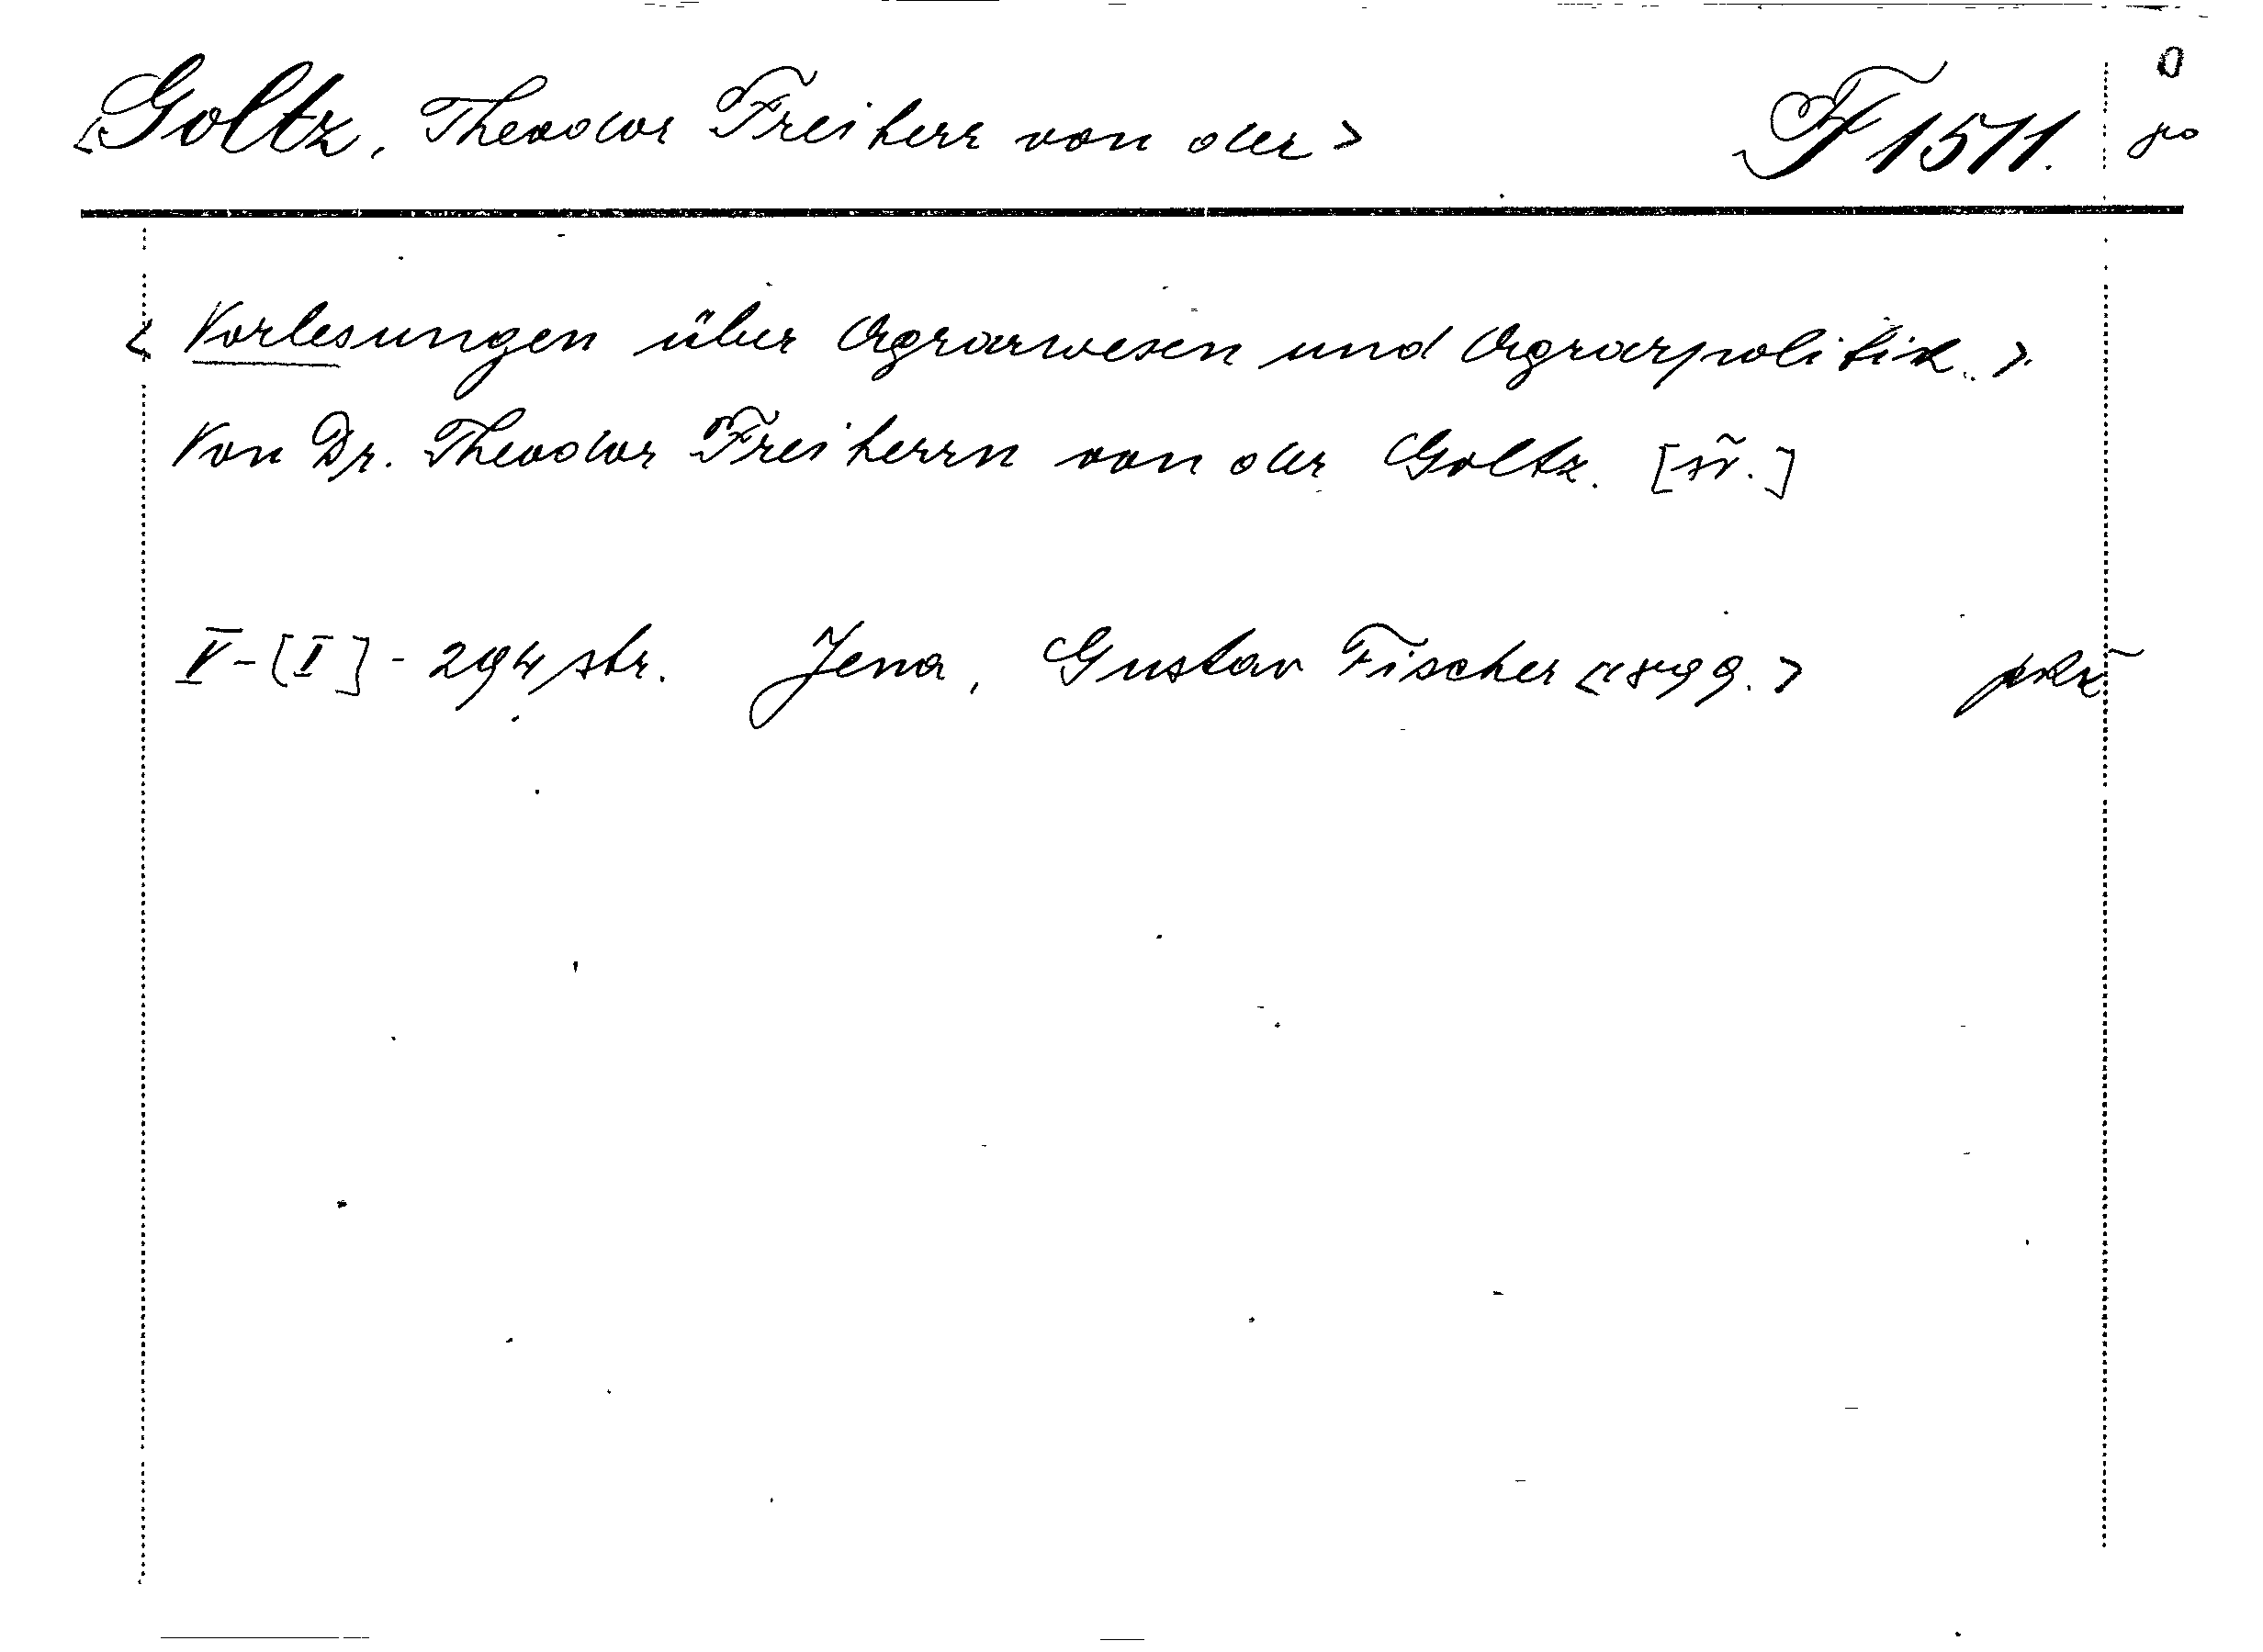 <Goltz, Theodor Freiherr von der> F 1511.
<Vorlesungen über Agrarwesen und Agrarpolitik.>
Von Dr. Theodor Freiherrn von der Goltz.
V-[I]-294 str. Jena, Gustav Fischer <1899.>